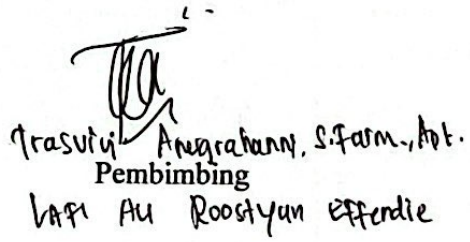 Trasvivi Anugrahany, S.Farm., Apt.
Pembimbing
LAFI AU Roostyan Effendie